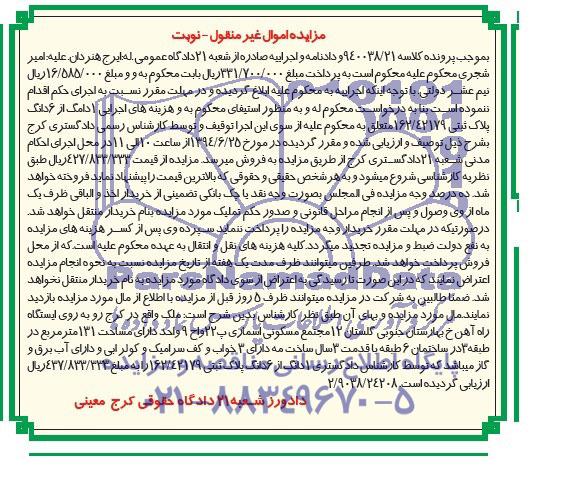 مزایده اموال غیر منقول - نوبت
بموجب پرونده کلاسه 940038/21 و دادنامه و اجراییه صادره از شعبه 21 دادگاه عمومی. له: ایرج هنردان. علیه: امیر
شجری محکوم علیه محکوم است به پرداخت مبلغ 331/700/000 ریال بابت محکوم به و و مبلغ 16/585/000 ریال
نیم عشر دولتی. با توجه اینکه اجراییه به محکوم علیه ابلاغ گردیده و در مهلت مقرر نسبت به اجرای حکم اقدام
ننموده است بنا به درخواست محکوم له و به منظور استیفای محکوم به و هزینه های اجرایی 1 دانگ از 6 دانگ
پلاک ثبتی 163/42179 متعلق به محکوم علیه از سوی این اجرا توقیف و توسط کارشناس رسمی دادگستری کرج
بشرح ذیل توصیف و ارزیابی شده و مقرر گردیده در مورخ 1394/6/25 از ساعت 10 الی 11 در محل اجرای احکام
مدنی شعبه 21 دادگستری کرج از طریق مزایده به فروش میرسد. مزایده از قیمت 437/833/333 ریال طبق
نظریه کارشناسی شروع میشود و به هر شخص حقیقی و حقوقی که بالاترین قیمت را پیشنهاد نماید فروخته خواهد
شد. ده درصد وجه مزایده فی المجلس بصورت وجه نقد یا چک بانکی تضمینی از خریدار اخذ و الباقی ظرف یک
ماه از وی وصول و پس از انجام مراحل قانونی و صدور حکم تملیک مورد مزایده بنام خریدار منتقل خواهد شد.
درصورتیکه در مهلت مقرر خریدار وجه مزایده را پرداخت ننماید سپرده وی پس از کسر هزینه های مزایده
به نفع دولت ضبط و مزایده تجدید میگردد. کلیه هزینه های نقل و انتقال به عهده محکوم علیه است. که از محل
فروش پرداخت خواهد شد. طرفین میتوانند ظرف مدت یک هفته از تاریخ مزایده نسبت به نحوه انجام مزایده
اعتراض نمایند که در این صورت تا رسیدگی به اعتراض از سوی دادگاه مورد مزایده به نام خریدار منتقل نخواهد
شد. ضمنا طالبین به شرکت در مزایده میتوانند ظرف 5 روز قبل از مزایده با اطلاع از مال مورد مزایده بازدید
نمایند. مال مورد مزایده و بهای آن طبق نظر کارشناس بدین شرح است: ملک واقع در کرج رو به روی ایستگاه
راه آهن خ بهارستان جنوبی گلستان 12 مجتمع مسکونی اسماری پ 22 واح 9 واحد دارای مساحت 131 متر مربع در
طبقه 3 در ساختمان 6 طبقه با قدمت 3 سال ساخت مه دارای 3 خواب و کف سرامیک و کولر ابی و دارای آب برق و
گاز میباشد که توسط کارشناس دادگستری 1 دانگ از 6 دانگ پلاک ثبتی 163/42179 را به مبلغ 437/833/333 ریال
ارزیابی گردیده است. 2/9038/24208
دادورز شعبه 21 دادگاه حقوقی کرج معینی
ParsNamadData
پایگاه اطلاع رسانی مناقصه و مزایده
021-88349670-5